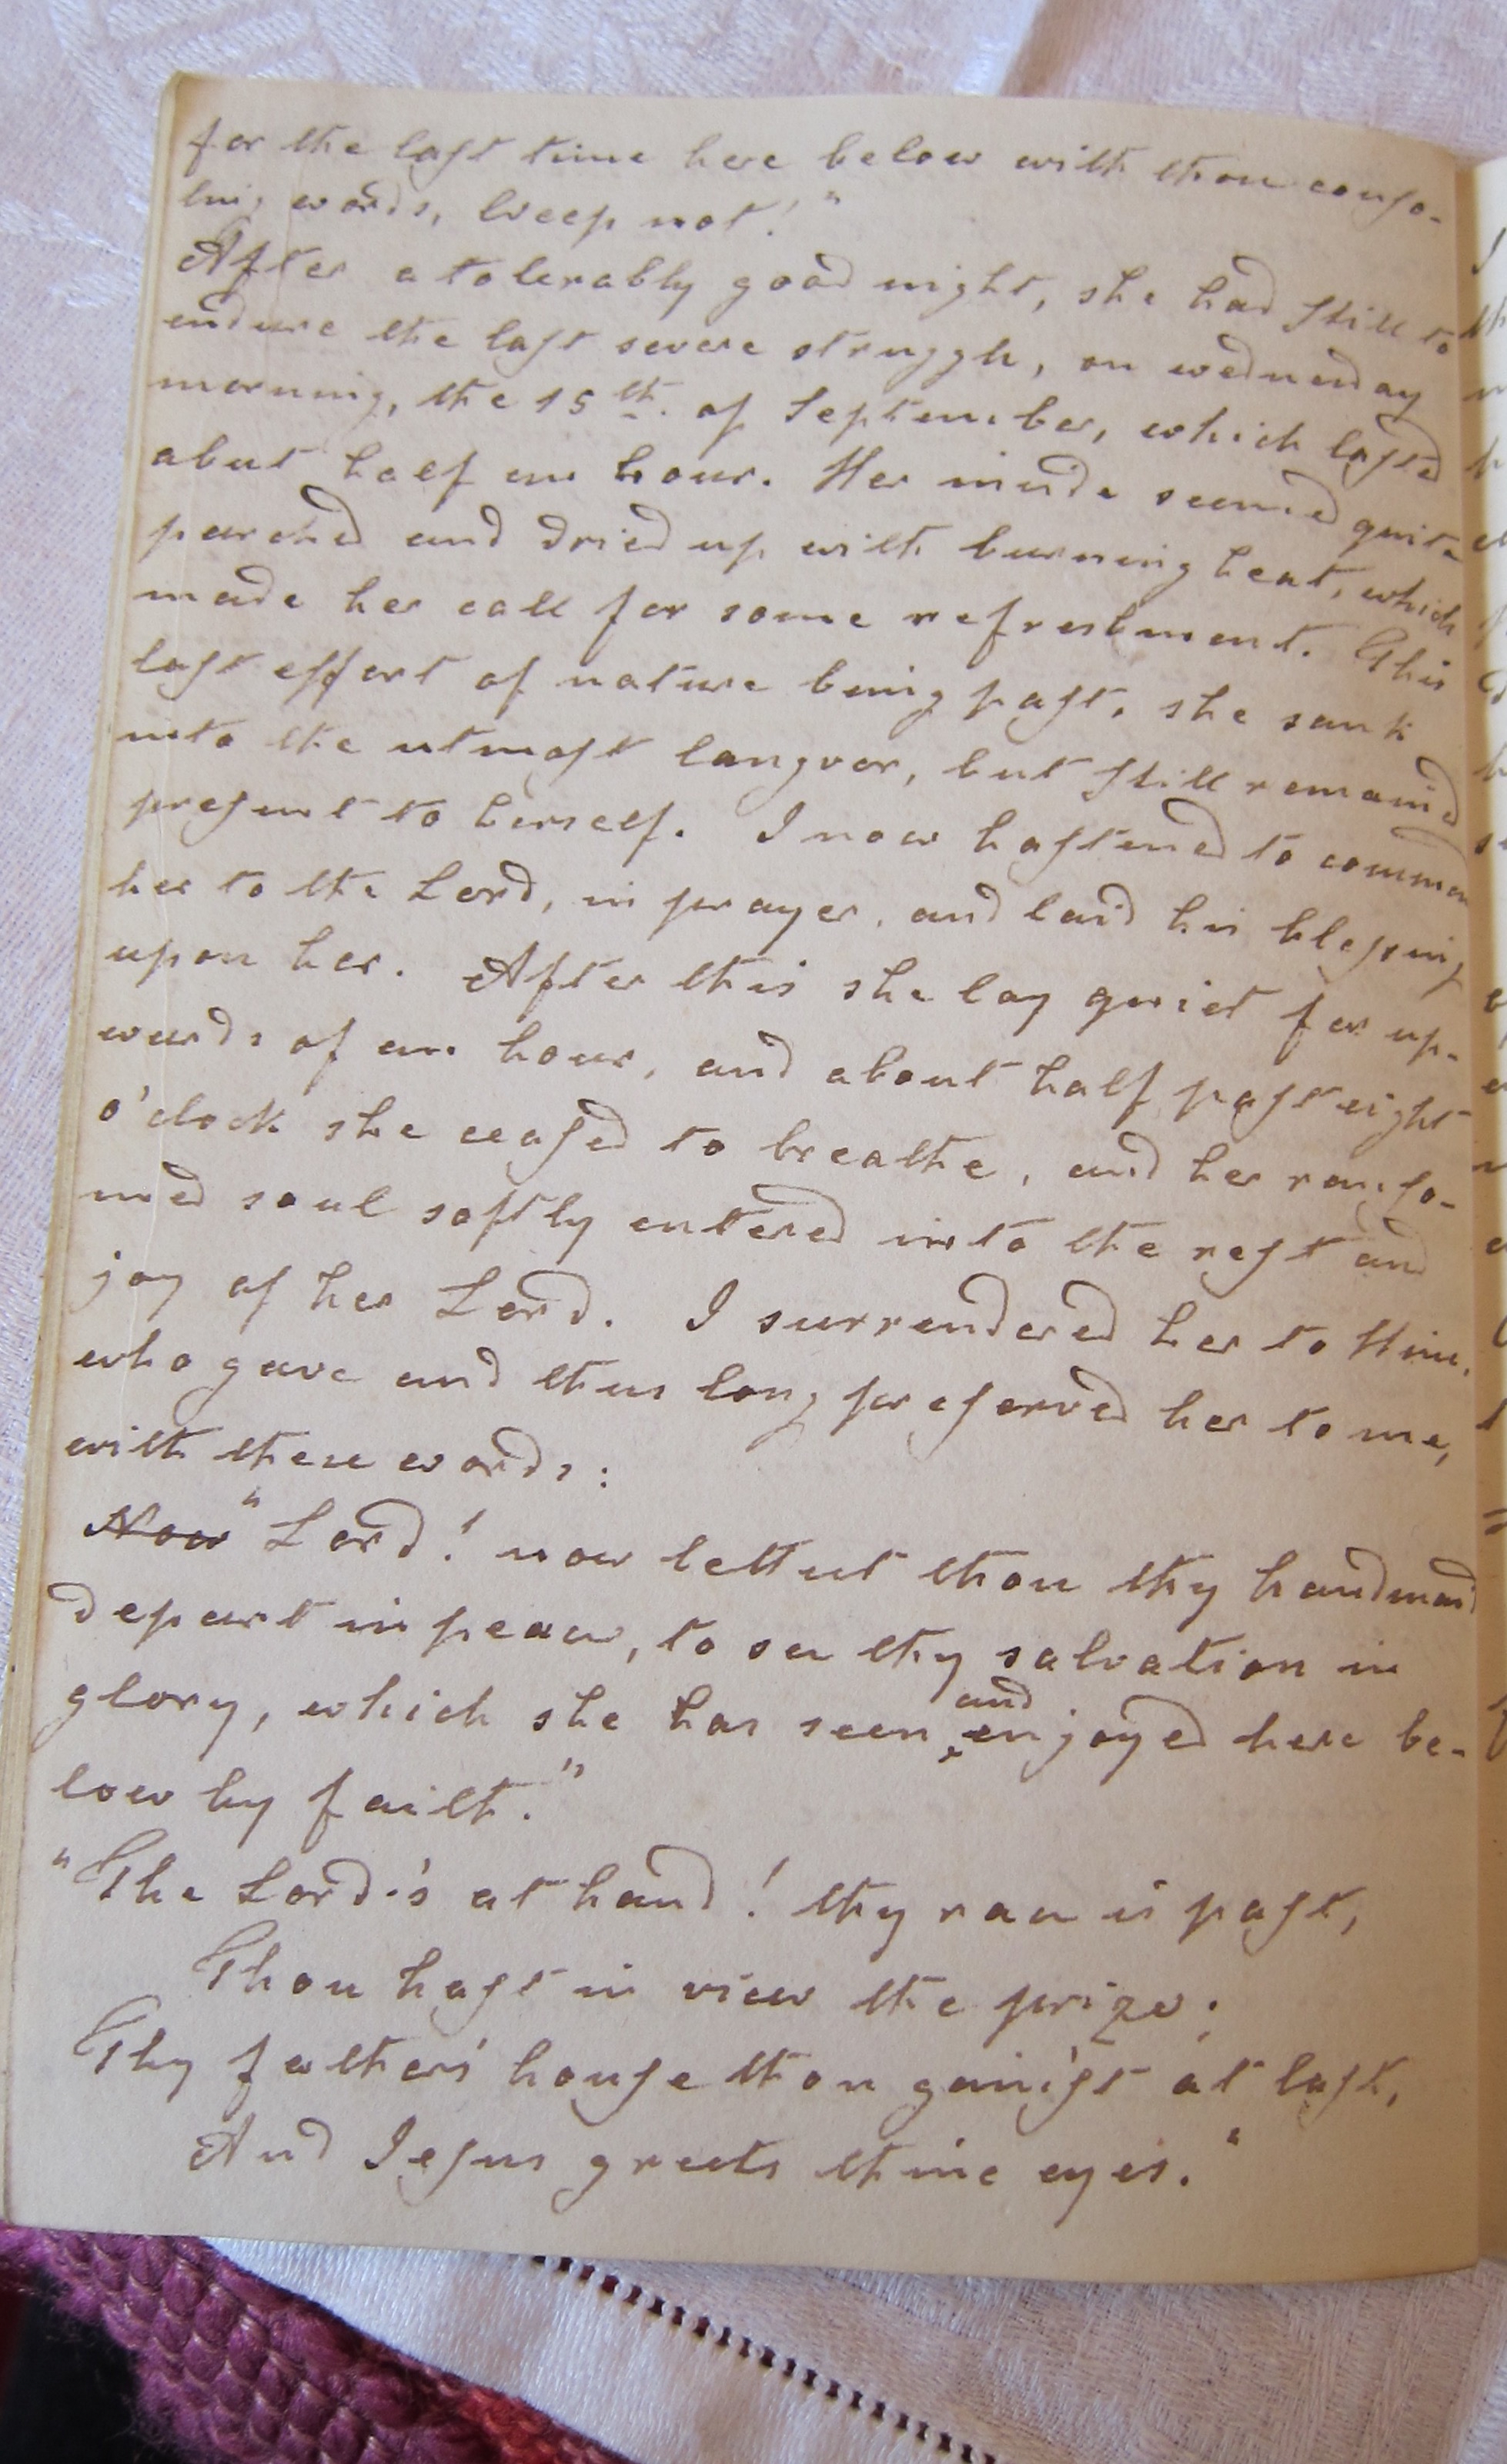 for the last time here below with thou conso-
ling words, Weep not!"
After a tolerably good night, she had still to
endure the last severe struggle, on wednesday
morning, the 15th. of September, which lasted
abut half an hour. Her inside seemed quite
parched and dried up with burning heat, which
made her call for some refreshment. This
last effort of nature being past, she sank
into the utmost languor, but still remained
present to herself. I now hastened to commen
her to the Lord, in prayer, and laid his blessing
upon her. After this she lay quiet for up-
wards of an hour, and about half past eight
o'clock she ceased to breathe, and her ranso-
med soul softly entered into the rest and
joy of her Lord. I surrendered her to Him,
who gave and thus long preserved her to me,
with these words:
Now "Lord! now lettest thou thy handmaid
depart in peace, to see thy salvation in
glory, which she has seen and enjoyed here be-
low by faith."
"The Lord's at hand! thy race is past,
Thou hast in view the prize;
Thy fathers' house thou gain'st at last,
And Jesus greets thine eyes."